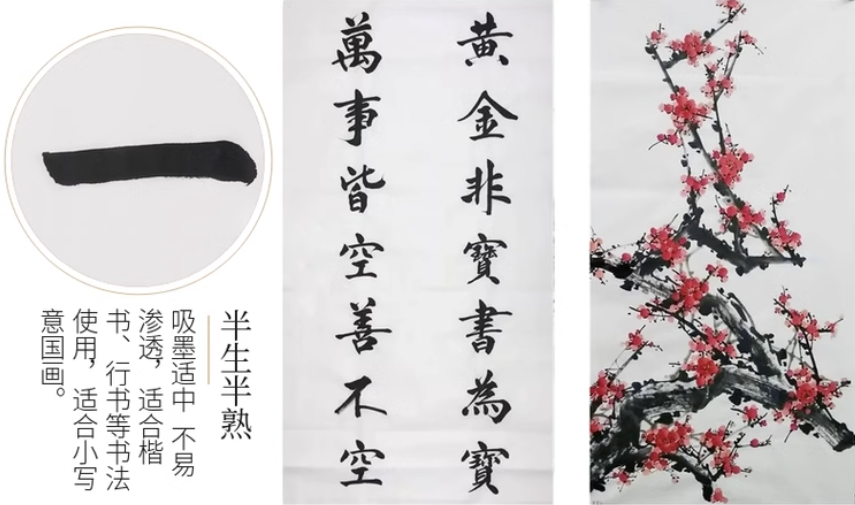 半生半熟
吸墨适中 不易
渗透，适合楷
书、行书等书法
使用，适合小写
意国画。
一
黄金非寶書為寶
萬事皆空善不空